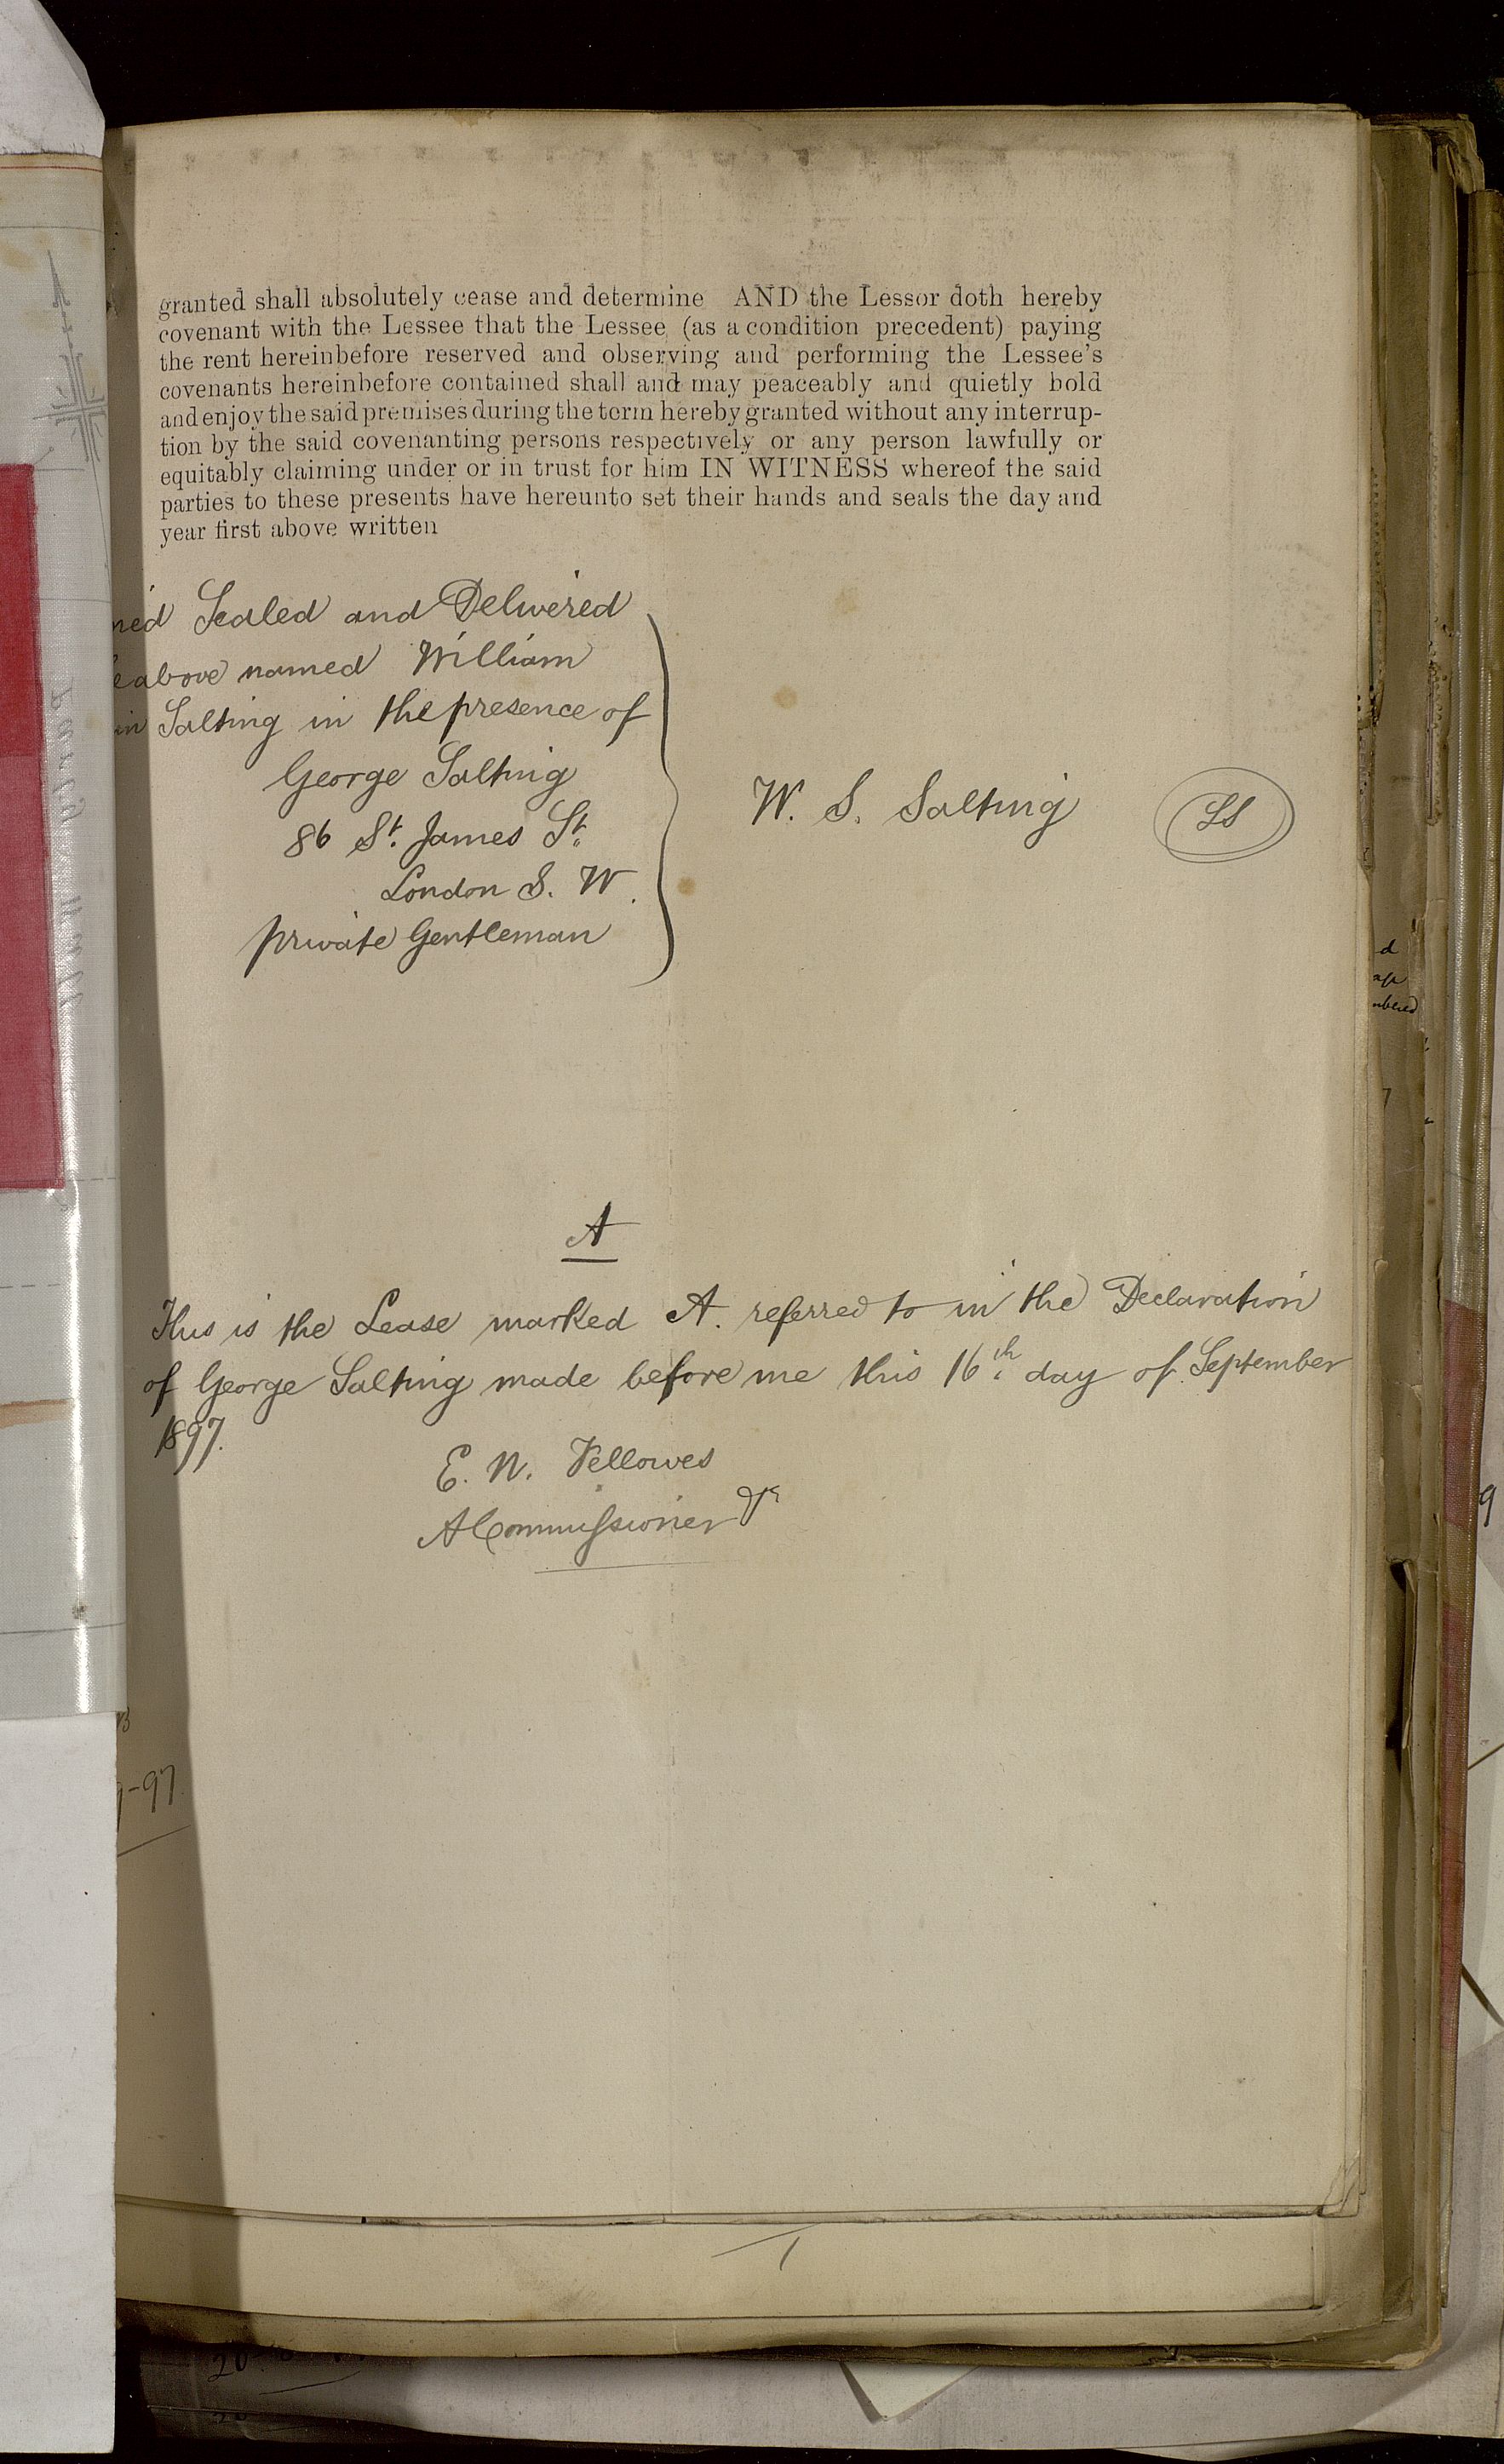 granted shall absolutely cease and determine AND the Lessor doth hereby
covenant with the Lessee that the Lessee (as a condition precedent) paying
the rent hereinbefore reserved and observing and performing the Lessee's
covenants hereinbefore contained shall and may peaceably and quietly hold
and enjoy the said premises during the term hereby granted without any interrup-
tion by the said covenanting persons respectively or any person lawfully or
equitably claiming under or in trust for him IN WITNESS whereof the said
parties to these presents have hereunto set their hands and seals the day and
year first above written
ned Sealed and Delivered
e above named William
in Salting in the presence of
George Salting
86 St. James St.
London S. W.
private Gentleman
W. S. Salting LS
A
This is the Lease marked A. referred to in the Declaration
of George Salting made before me this 16th day of September
1897.
E. N. Fellowes
A Commissioner &c
-97